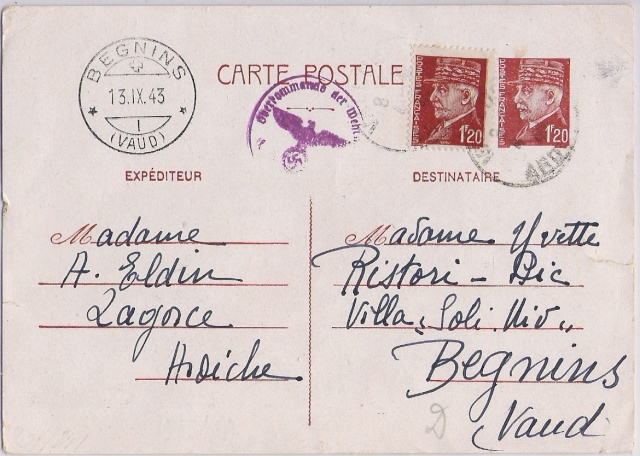 BEGNINS
13.IX.43
1
(VAUD)
CARTE POSTALE
Oberkommando der Wehr
POSTES FRANÇAISES
1F20
POSTES FRANÇAISES
1F20
ARD
EXPÉDITEUR
Madame
A. Eldin
Lagorce
Ardèche
DESTINATAIRE
Madame Yvette
Ristori - Bic
Villa "Soli. Niv"
Begnins
Vaud
D